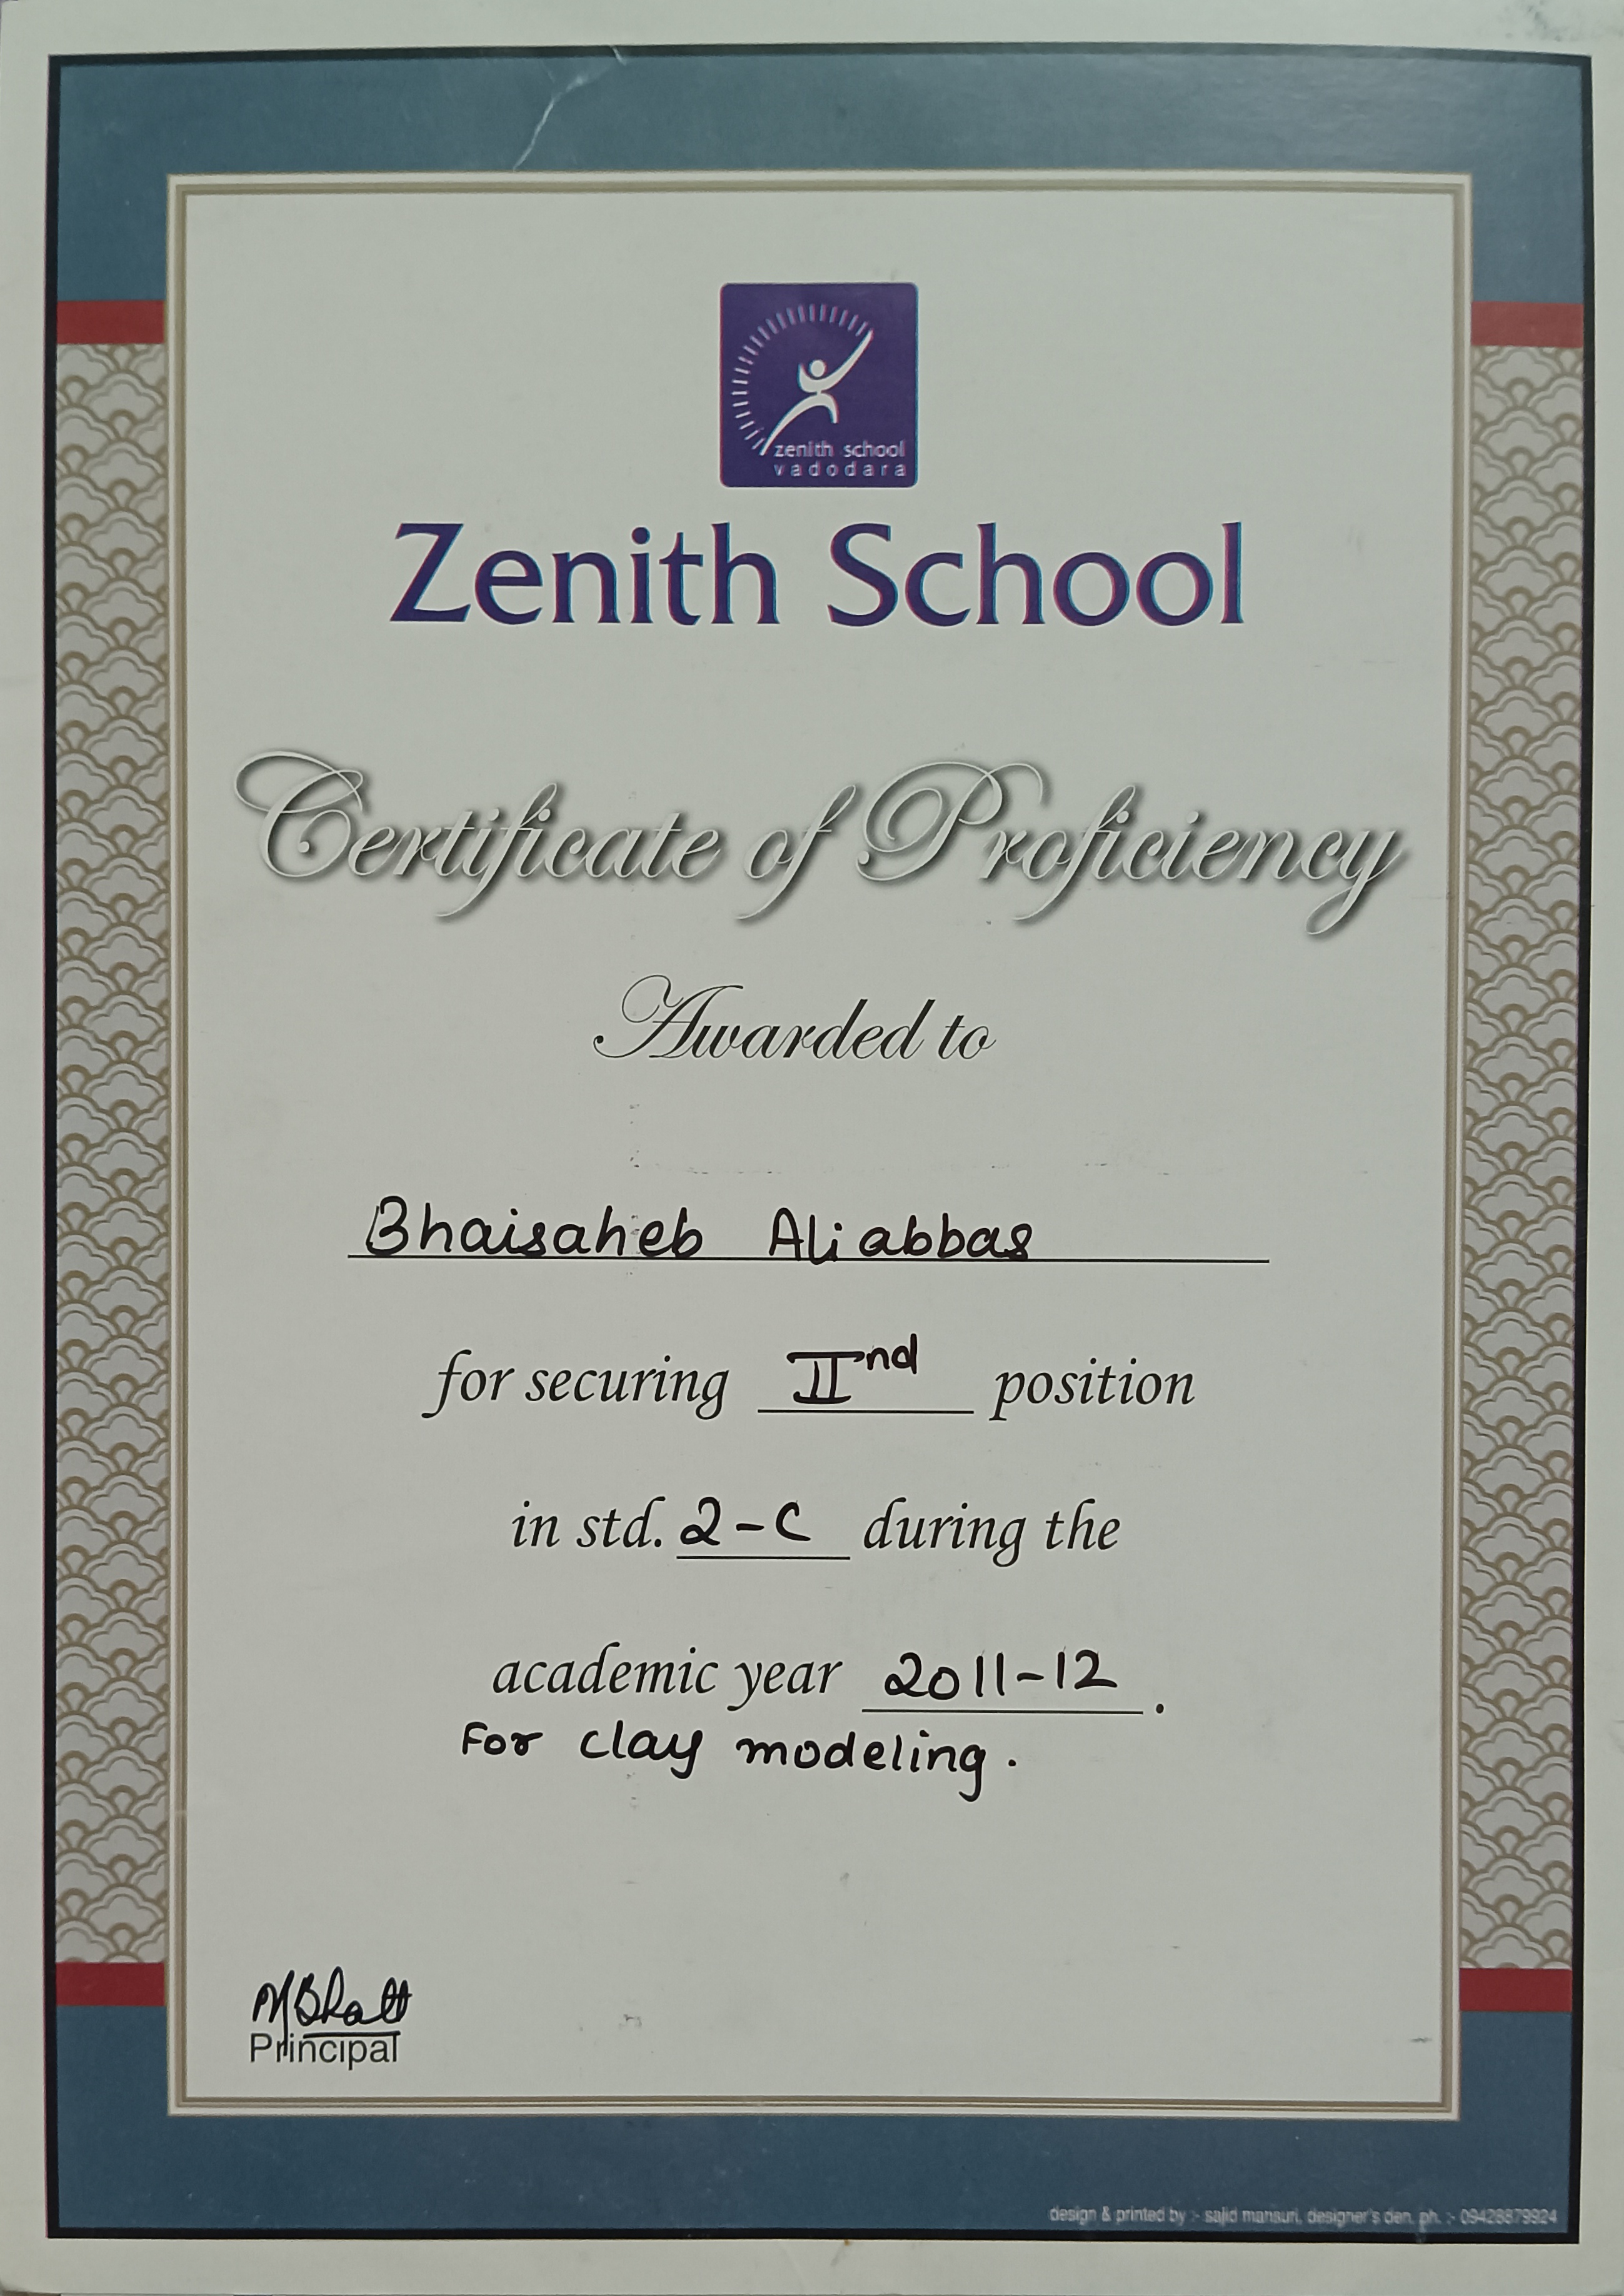 zenith school
vadodara
Zenith School
Certificate of Proficiency
Awarded to
Bhaisaheb Aliabbas
for securing IInd position
in std. 2-C during the
academic year 2011-12.
For clay modeling.
MBhatt
Principal
design & printed by :- sajid mansuri, designer's den. ph. :- 09428879924